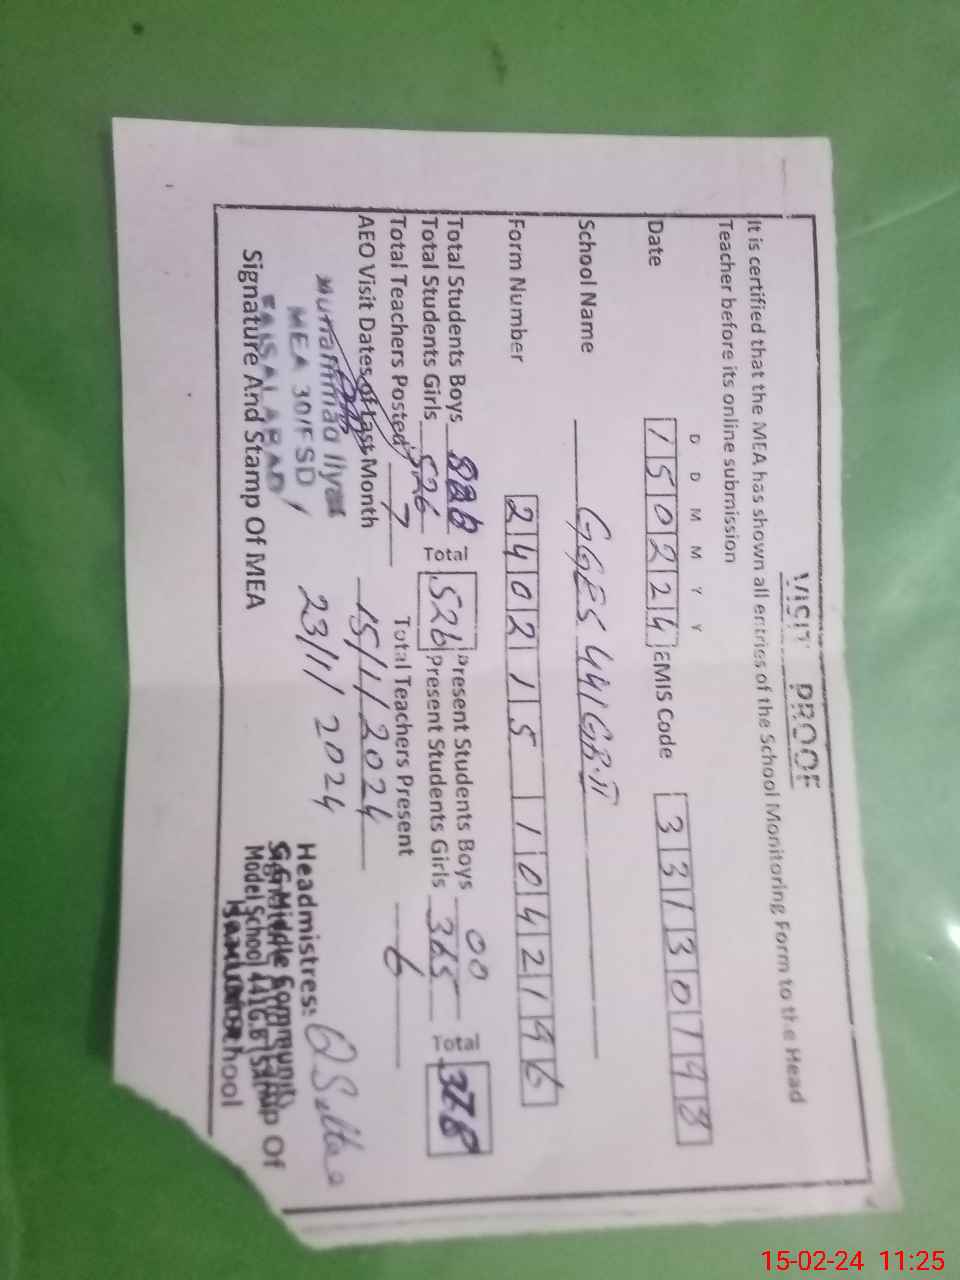 VISIT PROOF
It is certified that the MEA has shown all entries of the School Monitoring Form to the Head
Teacher before its online submission
D D M M Y Y
Date 150224 EMIS Code 33130793
School Name GGES 441GB.II
Form Number 240215 1042196
Total Students Boys Total Present Students Boys 00 Total
Total Students Girls 526 526 Present Students Girls 365
Total Teachers Posted 7 Total Teachers Present 6
AEO Visit Dates of Last Month 15/1/2024
23/1/2024
Muhammad Ilyas
MEA 30/FSD
FAISALABAD
Signature And Stamp Of MEA
Headmistress:
G.G Middle Community
Model School 441G.B
15-02-24 11:25